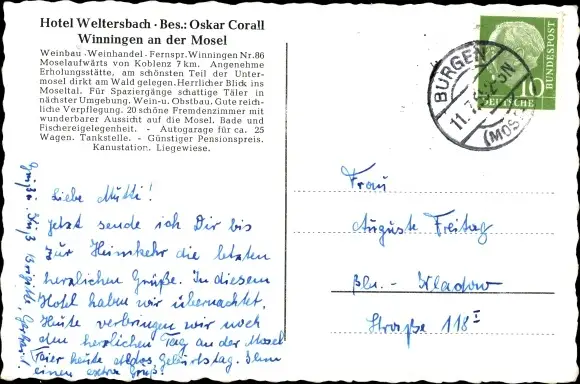 Hotel Weltersbach · Bes.: Oskar Corall
Winningen an der Mosel
Weinbau · Weinhandel · Fernspr. Winningen Nr. 86
Moselaufwärts von Koblenz 7 km. Angenehme
Erholungsstätte, am schönsten Teil der Unter-
mosel dirkt am Wald gelegen. Herrlicher Blick ins
Moseltal. Für Spaziergänge schattige Täler in
nächster Umgebung. Wein-u. Obstbau. Gute reich-
liche Verpflegung. 20 schöne Fremdenzimmer mit
wunderbarer Aussicht auf die Mosel. Bade und
Fischereigelegenheit. - Autogarage für ca. 25
Wagen. Tankstelle. - Günstiger Pensionspreis.
Kanustation. Liegewiese.
Liebe Mutti!
Jetzt sende ich Dir bis
zur Heimkehr die letzten
herzlichen Grüße. In diesem
Hotel haben wir übernachtet.
Heute verbringen wir noch
den herrlichen Tag an der Mosel
heute Geburtstag. Ihm
einen extra Gruß
Brigitte,
BURGEN
11.7.
(MOSEL)
10
DEUTSCHE
BUNDESPOST
Frau
Auguste Freitag
Bln.- Kladow
Straße 118 I